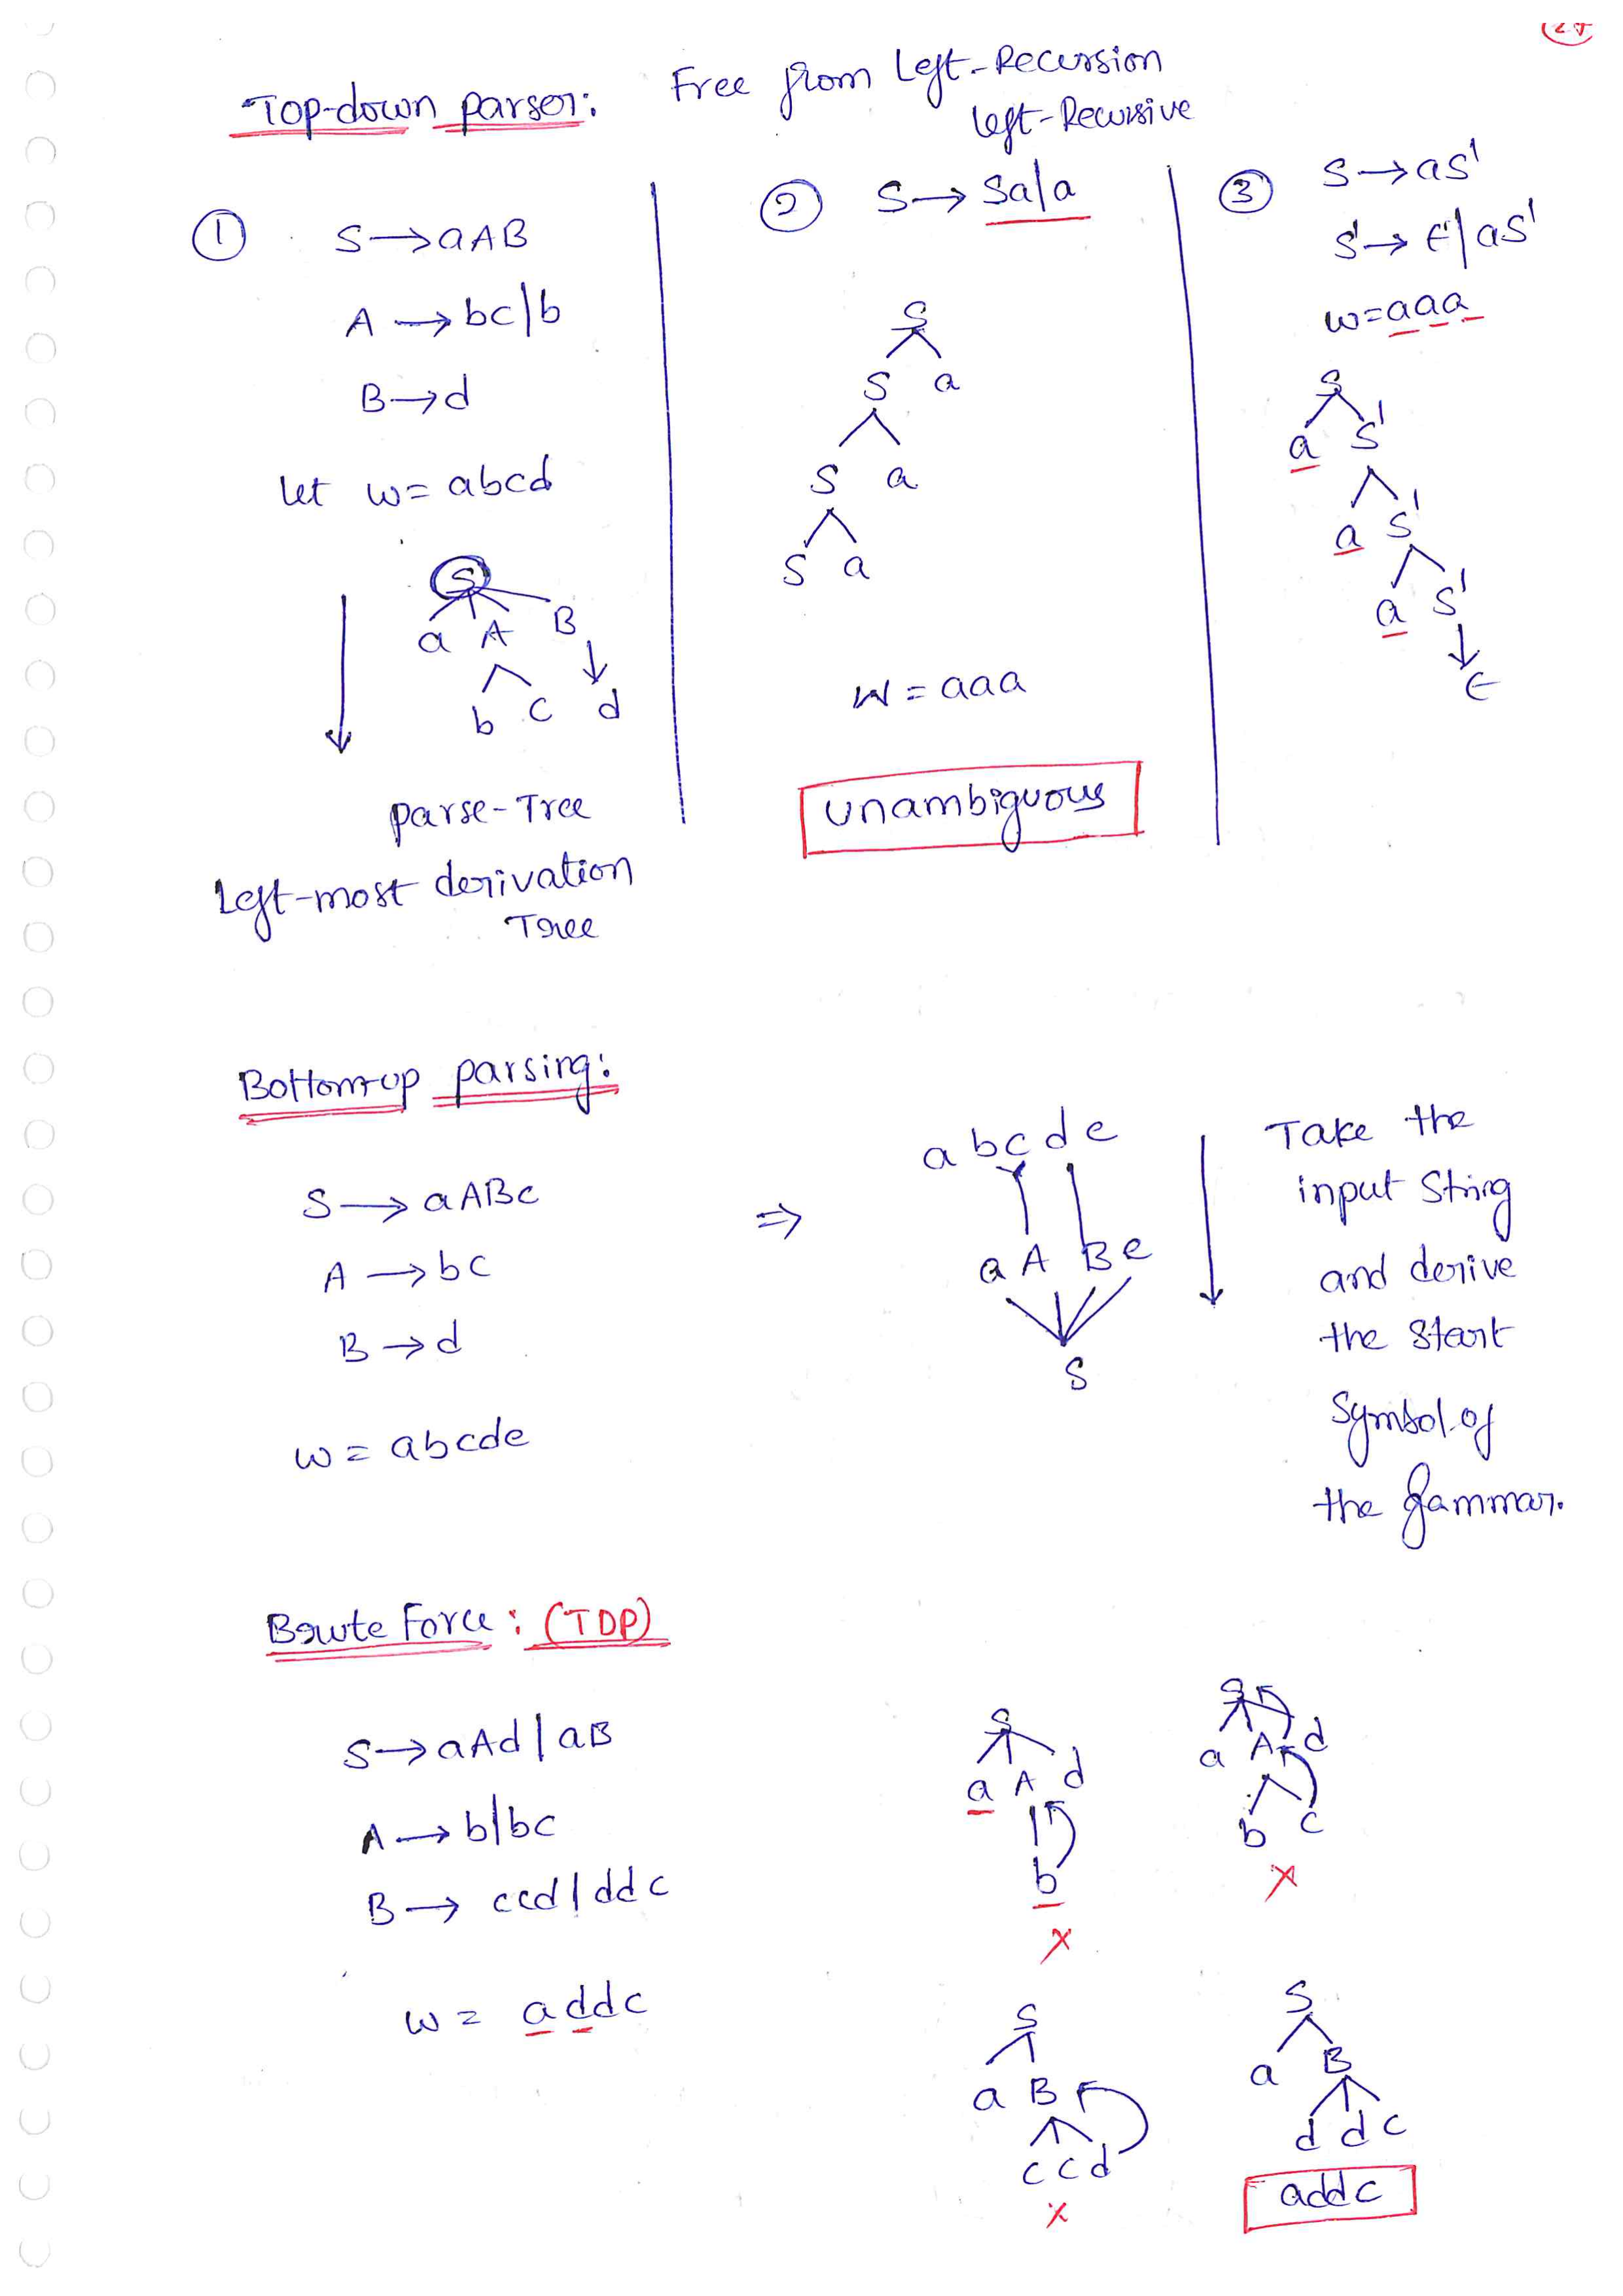 Top-down parser: Free from Left-Recursion
Left-Recursive
① S → aAB
A → bc|b
B → d
let w = abcd
S
a A B
b c d
parse-Tree
Left-most derivation
Tree
② S → Sa|a
S
S a
S a
S a
w = aaa
unambiguous
③ S → aS'
S' → ϵ|aS'
w = aaa
S
a S'
a S'
a S'
ϵ
Bottom-up parsing:
S → aABe
A → bc
B → d
w = abcde
⇒
a b c d e
a A B e
S
Take the
input String
and derive
the start
Symbol of
the gammar.
Brute Force: (TDP)
S → aAd | aB
A → b|bc
B → ccd | ddc
w = addc
S
a A d
b
x
S
a A d
b c
x
S
a B
c c d
x
S
a B
d d c
addc